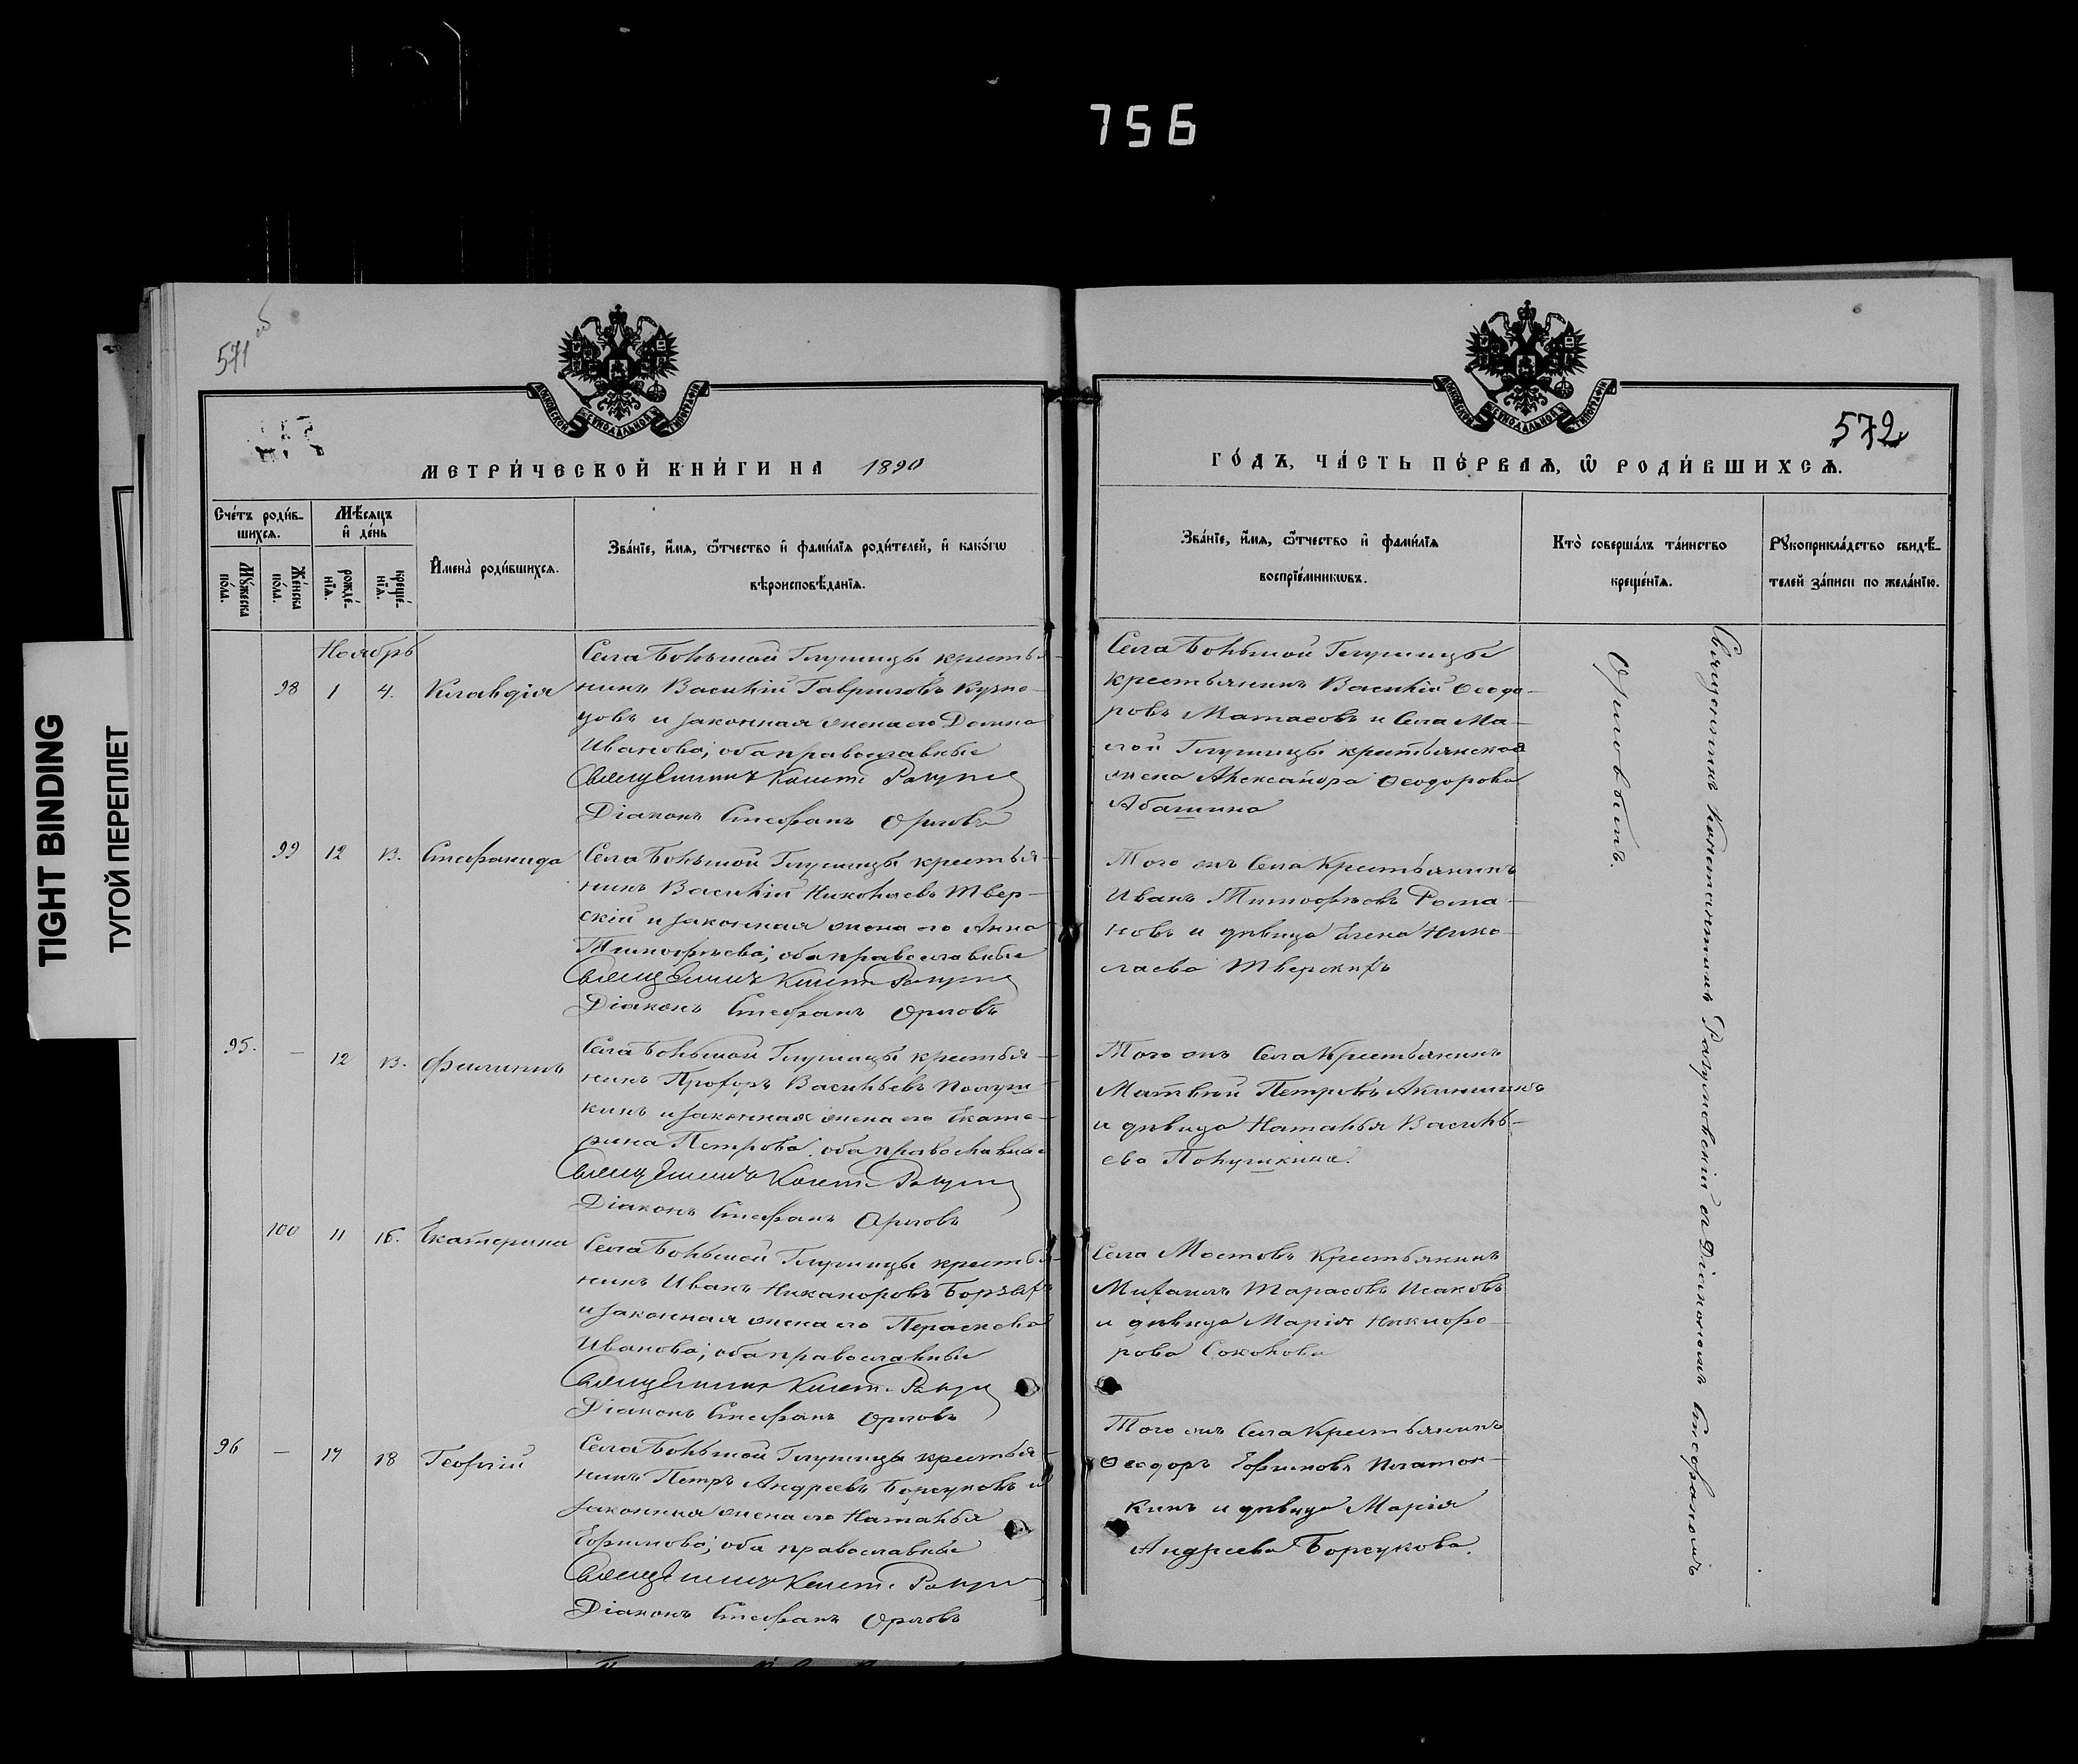 756
TIGHT BINDING
ТУГОЙ ПЕРЕПЛЕТ
571 об
МОСКОВСКОЙ СѴНОДАЛЬНОЙ ТИПОГРАФІИ
МЕТРИ́ЧЕСКОЙ КНИ́ГИ НА 1890
Сче́тъ роди́в-
шихсѧ.
Мѣ́сѧцъ
и҆ де́нь
Мꙋ́жеска
по́ла.
Же́нска
по́ла.
рожде́-
нїѧ.
креще́-
нїѧ.
И҆мена̀ роди́вшихсѧ.
Зва́нїе, и҆́мѧ, ѻ҆́тчество и҆ фами́лїѧ роди́телей, и҆ како́гѡ
вѣроисповѣ́данїѧ.
Ноябрь
98 1 4. Клавдія
Села Большой Глушицы крестья-
нинъ Василій Гавриловъ Кузне-
цовъ и законная жена его Домна
Иванова; оба православные
Священникъ Конст. Разум
Діаконъ Стефанъ Орловъ
99 12 13. Стефанида
Села Большой Глушицы крестья-
нинъ Василій Николаевъ Твер-
скій и законная жена его Анна
Тимофѣева; оба православные
Священникъ Конст. Разум
Діаконъ Стефанъ Орловъ
95. — 12 13. Филиппъ
Села Большой Глушицы крестья-
нинъ Прохоръ Васильевъ Полуш-
кинъ и законная жена его Екате-
рина Петрова; оба православные
Священникъ Конст. Разум
Діаконъ Стефанъ Орловъ
100 11 16. Екатерина
Села Большой Глушицы крестья-
нинъ Иванъ Никаноровъ Борзыхъ
и законная жена его Параскева
Иванова; оба православные
Священникъ Конст. Разум
Діаконъ Стефанъ Орловъ
96 — 17 18 Георгій
Села Большой Глушицы крестья-
нинъ Петръ Андреевъ Борсуковъ и
законная жена его Наталья
Ефимова; оба православные
Священникъ Конст. Разум
Діаконъ Стефанъ Орловъ
572
МОСКОВСКОЙ СѴНОДАЛЬНОЙ ТИПОГРАФІИ
ГО́ДЪ, ЧА́СТЬ ПЕ́РВАѦ, Ѡ҆ РОДИ́ВШИХСѦ.
Зва́нїе, и҆́мѧ, ѻ҆́тчество и҆ фами́лїѧ
воспрїе́мникѡвъ.
Кто̀ соверша́лъ та́инство
креще́нїѧ.
Рꙋкоприкла́дство свидѣ́-
телей за́писи по жела́нїю.
Села Большой Глушицы
крестьянинъ Василій Ѳеодо-
ровъ Матасовъ и Села Ма-
лой Глушицы крестьянская
жена Александра Ѳеодорова
Абашина
Того же Села Крестьянинъ
Иванъ Тимофѣевъ Рома-
новъ и дѣвица Елена Нико-
лаева Тверскихъ
Того же Села Крестьянинъ
Матвѣй Петровъ Акиньшинъ
и дѣвица Наталья Василь-
ева Полушкина.
Села Мостовъ Крестьянинъ
Михаилъ Тарасовъ Исаковъ
и дѣвица Марія Никифо-
рова Соколова
Того же Села Крестьянинъ
Ѳеодоръ Ефимовъ Платон-
кинъ и дѣвица Марія
Андреева Борсукова.
Священникъ Константинъ Разумовскій съ Діакономъ Стефаномъ
Орловымъ.